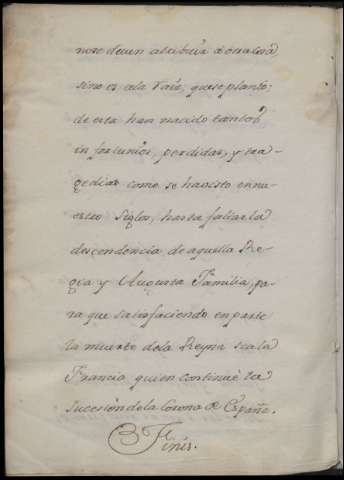 no se deven atribuir à otra cosa
sino es a la raiz, que se planto;
de esta han nacido tantos
infortunios, perdidas, y tra-
gedias como se han visto en nu-
estro Siglo, hasta faltar la
descendencia, de aquella Re-
gia y Augusta Familia, pa-
ra que satisfaciendo en parte
la muerte de la Reyna sea la
Francia quien continue la
sucesion de la Corona de España.
Finis.